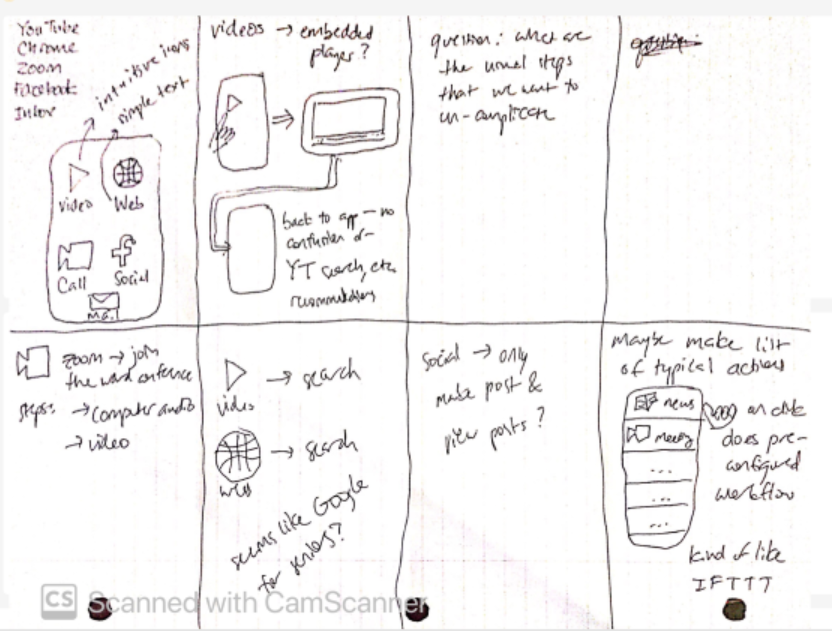 YouTube
Chrome
Zoom
Facebook
intuitive icons
simple text
video
Web
Call
Social
Mail
videos → embedded
player?
back to app — no
confusion of
YT search, etc.
recommendations
question: what are
the usual steps
that we want to
un-complicate
zoom → join
the word
steps: → computer audio
→ video
video → search
web → search
seems like Google
for seniors?
social → only
make post &
view posts?
Maybe make list
of typical actions
news
...
...
...
on click
does pre-
configured
workflow
kind of like
IFTTT
CS Scanned with CamScanner